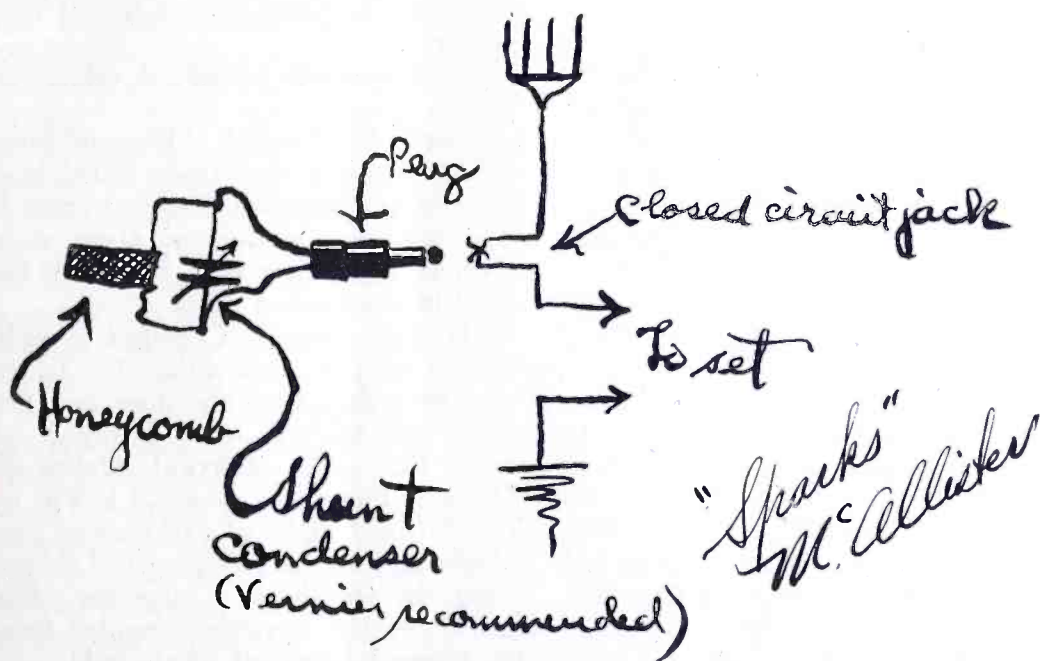 Plug
closed circuit jack
To set
Honeycomb
Shunt
condenser
(Vernier recommended)
"Sparks"
McAllister